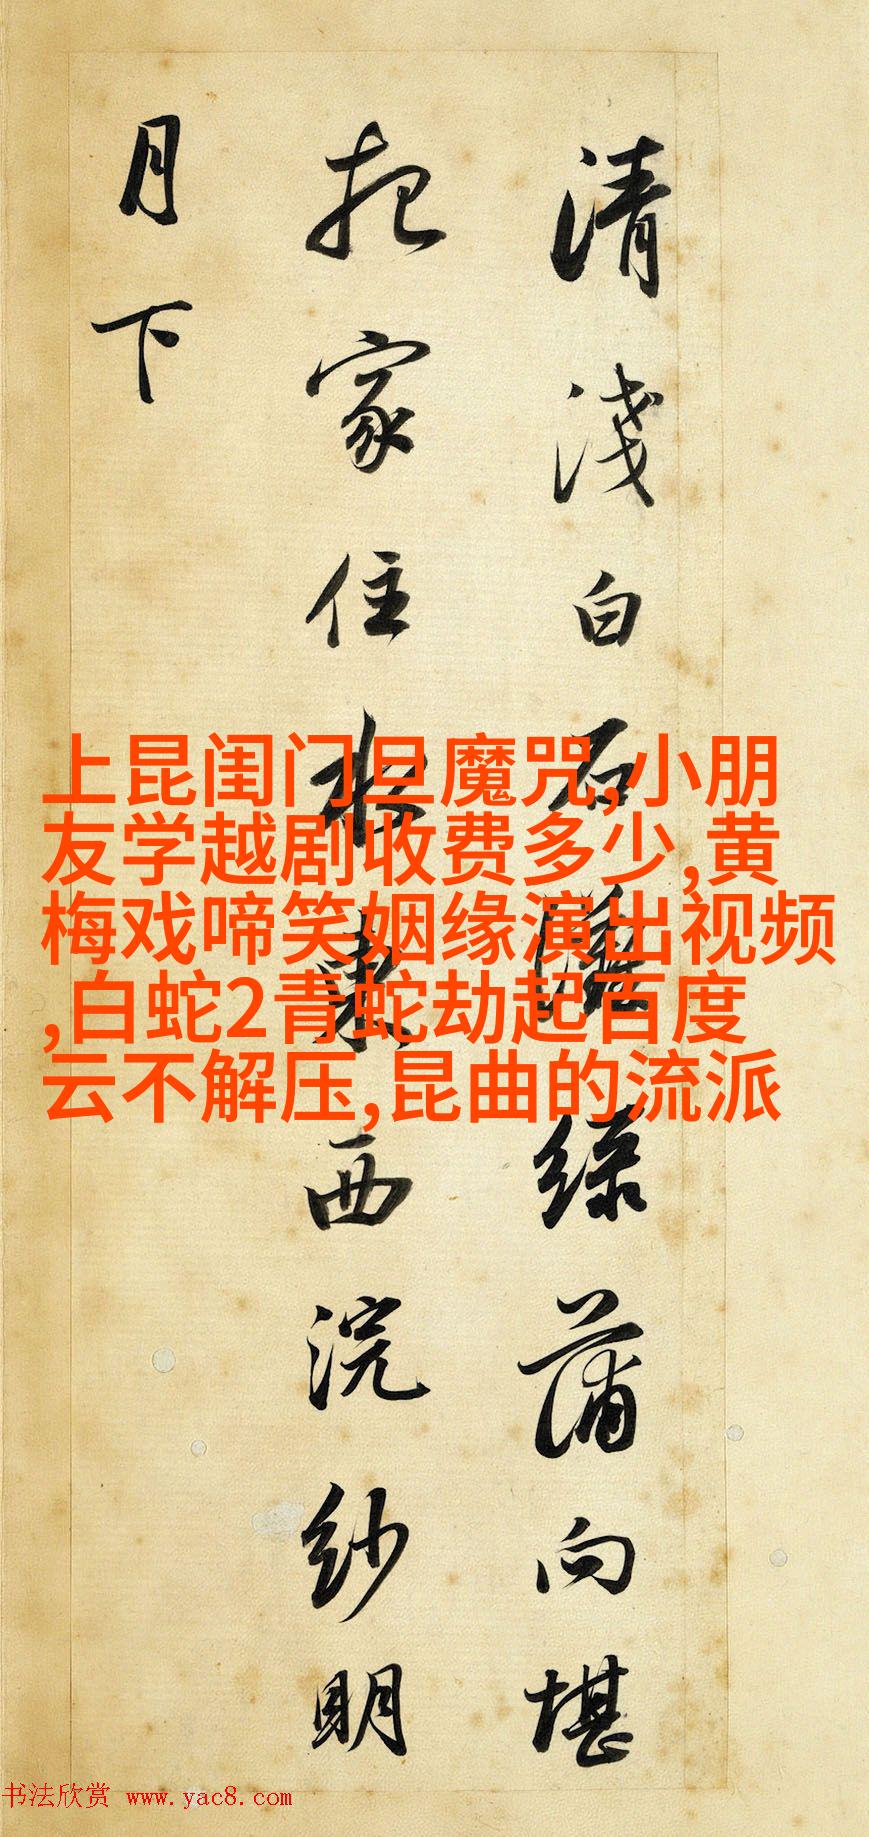 清淺白石灘綠蒲向堪
把家住水東西浣紗明
月下
上昆闺门旦魔咒,小朋
友学越剧收费多少,黄
梅戏啼笑姻缘演出视频
,白蛇2青蛇劫起百度
云不解压,昆曲的流派
书法欣赏 www.yac8.com